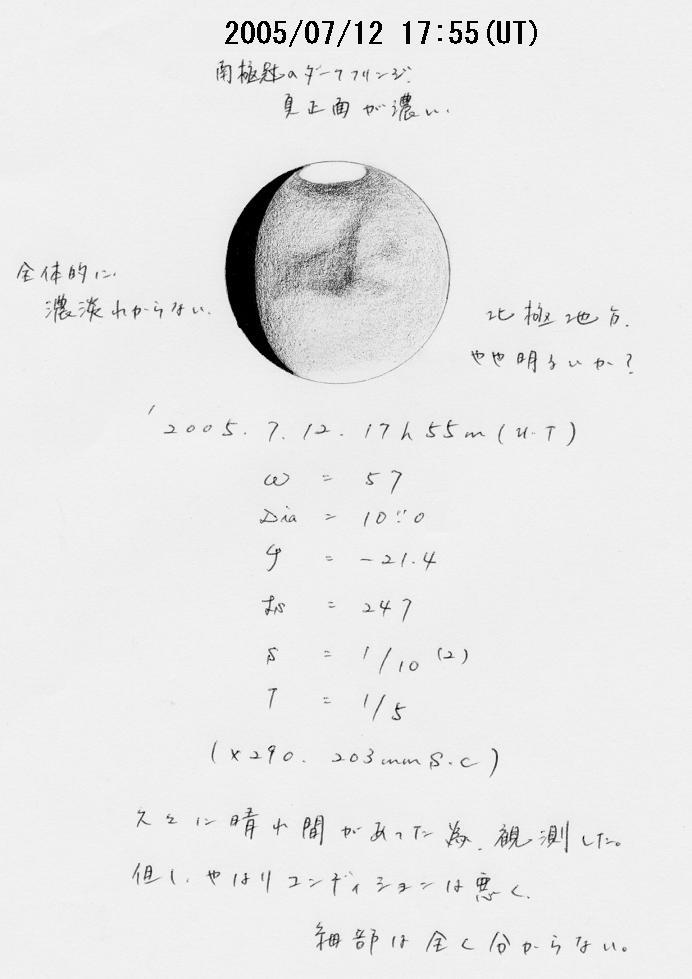 2005/07/12 17:55(UT)
南極冠のダークフリンジ.
真正面が濃い.
全体的に.
濃淡わからない.
北極地方.
やや明るいか?
'2005.7.12.17h55m(U.T)
ω = 57
Dia = 10".0
φ = -21.4
Ls = 247
S = 1/10 (2)
T = 1/5
(×290. 203mm S.C)
久々に晴れ間があった為、観測した。
但し、やはりコンディションは悪く、
細部は全く分からない。